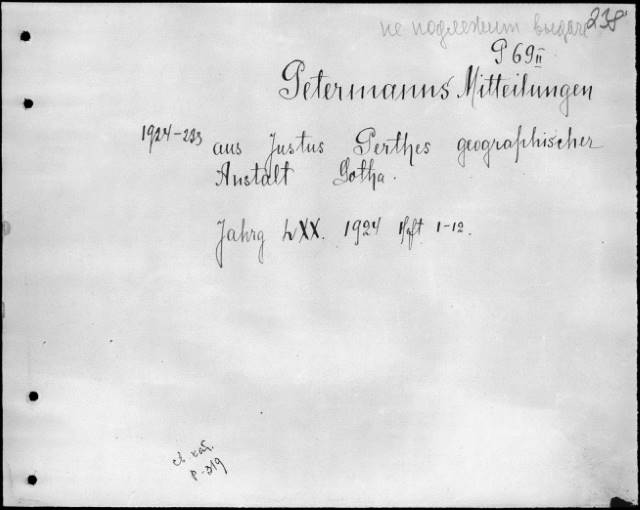 не подлежит выдаче 238
P 69 II
Petermanns Mitteilungen
1924-233 aus Justus Perthes geographischer
Anstalt Gotha.
Jahrg LXX. 1924 Hft 1-12.
св. каб.
P-319